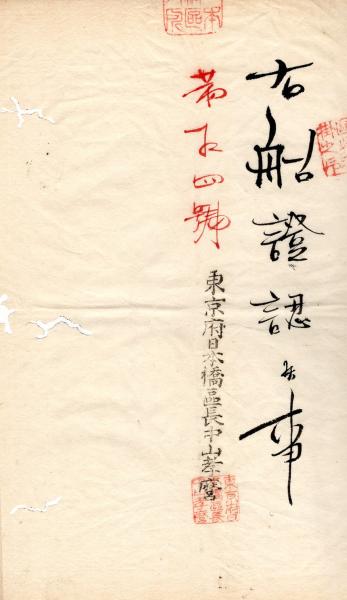 右船證認候事
第五四號
東京府日本橋區長中山孝麿